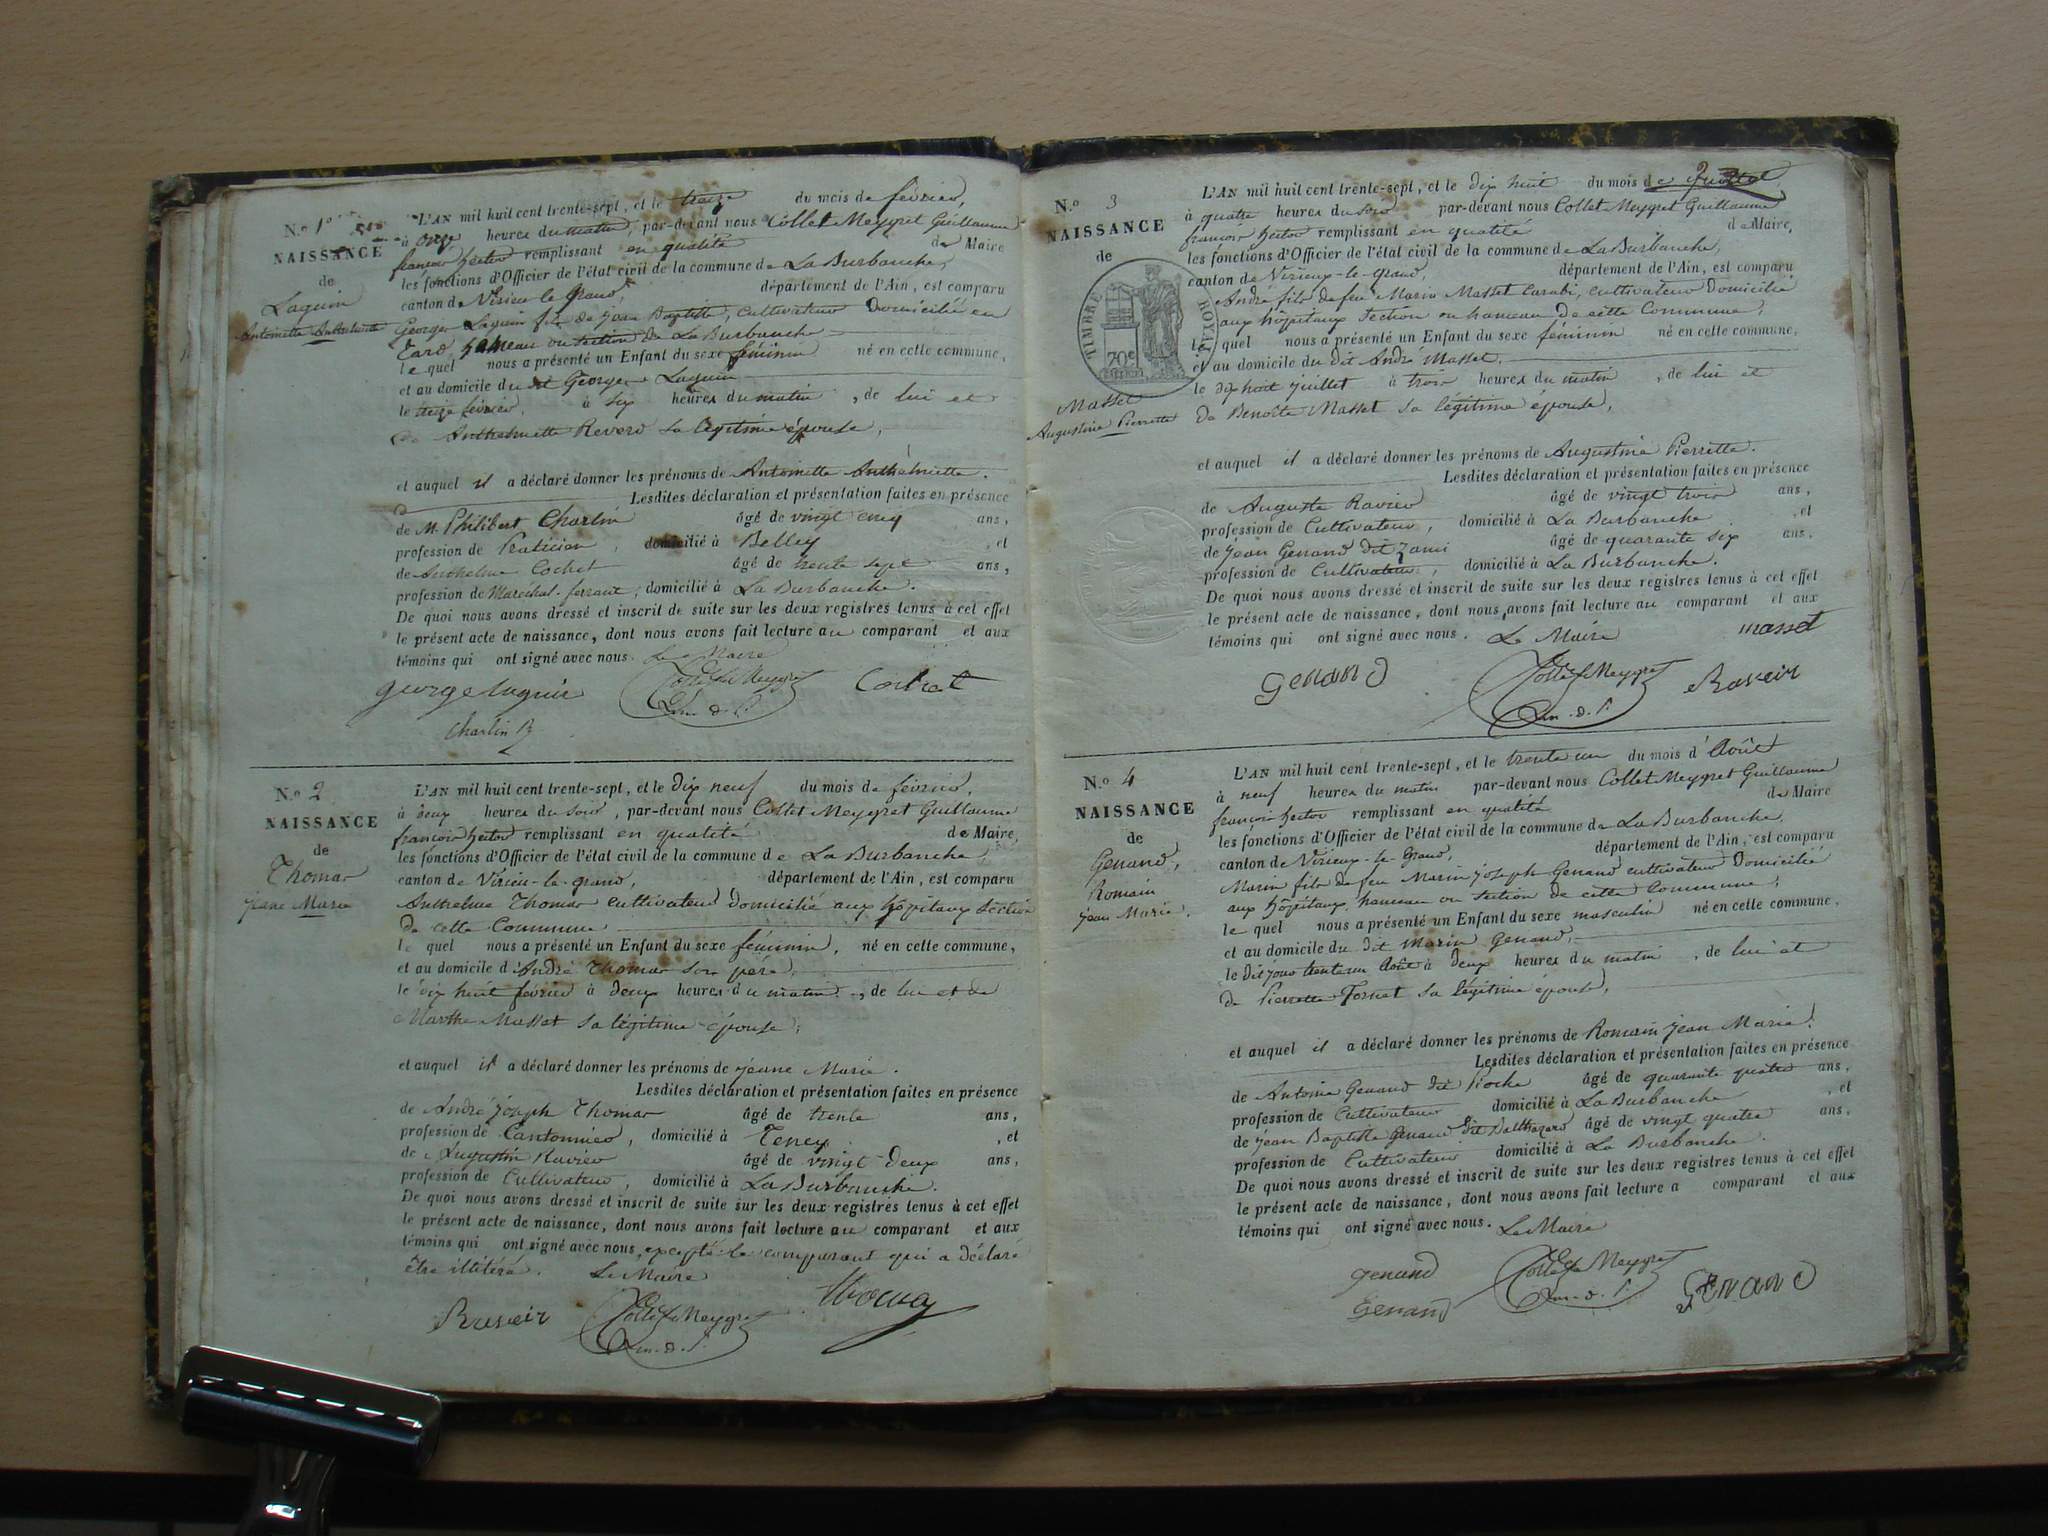 N.o 1er
NAISSANCE
de
Laguin
Antoinette Anthelmette
L'AN mil huit cent trente-sept, et le treize du mois de février,
à onze heures du matin, par-devant nous Collet Meygret Guillaume
françois hector remplissant en qualité de Maire
les fonctions d'Officier de l'état civil de la commune de La Burbanche,
canton de Virieu le grand, département de l'Ain, est comparu
George Laguin fils de Jean Baptiste, cultivateur Domicilié en
hameau ou section de La Burbanche
le quel nous a présenté un Enfant du sexe féminin né en cette commune,
et au domicile du dit George Laguin
le treize février, à six heures du matin, de lui et
de Anthelmette Reverd sa légitime épouse,
et auquel il a déclaré donner les prénoms de Antoinette Anthelmette.
Lesdites déclaration et présentation faites en présence
de M. Philibert Charlin âgé de vingt cinq ans,
profession de Praticien, domicilié à Belley, et
de Anthelme Cochet âgé de trente sept ans,
profession de Maréchal-ferrant, domicilié à La Burbanche.
De quoi nous avons dressé et inscrit de suite sur les deux registres tenus à cet effet
le présent acte de naissance, dont nous avons fait lecture au comparant et aux
témoins qui ont signé avec nous. Le Maire
george laguin Collet Meygret Cochet
Charlin
N.o 2
NAISSANCE
de
Thomas
jeane Marie
L'AN mil huit cent trente-sept, et le dix neuf du mois de février,
à deux heures du soir, par-devant nous Collet Meygret Guillaume
françois hector remplissant en qualité de Maire,
les fonctions d'Officier de l'état civil de la commune de La Burbanche,
canton de Virieu-le-grand, département de l'Ain, est comparu
Anthelme Thomas cultivateur domicilié aux hôpitaux section
de cette Commune
le quel nous a présenté un Enfant du sexe féminin, né en cette commune,
et au domicile d'André Thomas son père,
le dix huit février à deux heures du matin, de lui et de
Marthe Masset sa légitime épouse,
et auquel il a déclaré donner les prénoms de jeane Marie.
Lesdites déclaration et présentation faites en présence
de André joseph Thomas âgé de trente ans,
profession de Cantonnier, domicilié à Teney, et
de Augustin Ravier âgé de vingt deux ans,
profession de Cultivateur, domicilié à La Burbanche.
De quoi nous avons dressé et inscrit de suite sur les deux registres tenus à cet effet
le présent acte de naissance, dont nous avons fait lecture au comparant et aux
témoins qui ont signé avec nous, excepté le comparant qui a déclaré
être illitéré. Le Maire
Raveir Collet Meygret Thomas
N.o 3
NAISSANCE
de
TIMBRE ROYAL
70c
Masset
Augustine Pierrette
L'AN mil huit cent trente-sept, et le dix huit du mois de juillet,
à quatre heures du soir par-devant nous Collet Meygret Guillaume
françois hector remplissant en qualité de Maire,
les fonctions d'Officier de l'état civil de la commune de La Burbanche,
canton de Virieux-le-grand, département de l'Ain, est comparu
André fils de feu Marin Masset Carabi, cultivateur Domicilié
aux hôpitaux section ou hameau de cette Commune,
le quel nous a présenté un Enfant du sexe féminin né en cette commune,
et au domicile du dit André Masset.
le dix huit juillet à trois heures du matin, de lui et
de Benoite Masset sa légitime épouse,
et auquel il a déclaré donner les prénoms de Augustine Pierrette.
Lesdites déclaration et présentation faites en présence
de Auguste Ravier âgé de vingt trois ans,
profession de Cultivateur, domicilié à La Burbanche, et
de jean Genand dit Zami âgé de quarante six ans,
profession de Cultivateur, domicilié à La Burbanche.
De quoi nous avons dressé et inscrit de suite sur les deux registres tenus à cet effet
le présent acte de naissance, dont nous avons fait lecture au comparant et aux
témoins qui ont signé avec nous. Le Maire masset
Genand Collet Meygret Raveir
N.o 4
NAISSANCE
de
Genand,
Romain
jean Marie.
L'AN mil huit cent trente-sept, et le trente un du mois d'Août
à neuf heures du matin par-devant nous Collet Meygret Guillaume
françois hector remplissant en qualité de Maire
les fonctions d'Officier de l'état civil de la commune de La Burbanche,
canton de Virieux-le-Grand, département de l'Ain, est comparu
Marin fils de feu Marin joseph Genand cultivateur Domicilié
aux hôpitaux, hameau ou section de cette Commune,
le quel nous a présenté un Enfant du sexe masculin né en cette commune,
et au domicile du dit Marin Genand,
le dit jour trente un Août à deux heures du matin, de lui et
de Pierrette Fornet sa légitime épouse,
et auquel il a déclaré donner les prénoms de Romain jean Marie.
Lesdites déclaration et présentation faites en présence
de Antoine Genand dit Roche âgé de quarante quatre ans,
profession de Cultivateur domicilié à La Burbanche, et
de jean Baptiste Genand dit Balthazard âgé de vingt quatre ans,
profession de Cultivateur domicilié à La Burbanche.
De quoi nous avons dressé et inscrit de suite sur les deux registres tenus à cet effet
le présent acte de naissance, dont nous avons fait lecture a comparant et aux
témoins qui ont signé avec nous. Le Maire
genand Collet Meygret Genand
Genand